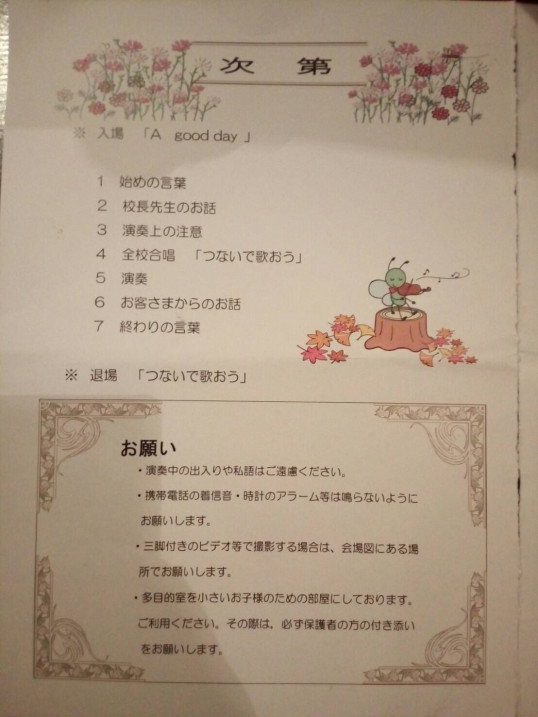 次 第
※ 入場 「A good day 」
1 始めの言葉
2 校長先生のお話
3 演奏上の注意
4 全校合唱 「つないで歌おう」
5 演奏
6 お客さまからのお話
7 終わりの言葉
※ 退場 「つないで歌おう」
お願い
・演奏中の出入りや私語はご遠慮ください。
・携帯電話の着信音・時計のアラーム等は鳴らないように
お願いします。
・三脚付きのビデオ等で撮影する場合は、会場図にある場
所でお願いします。
・多目的室を小さいお子様のための部屋にしております。
ご利用ください。その際は、必ず保護者の方の付き添い
をお願いします。